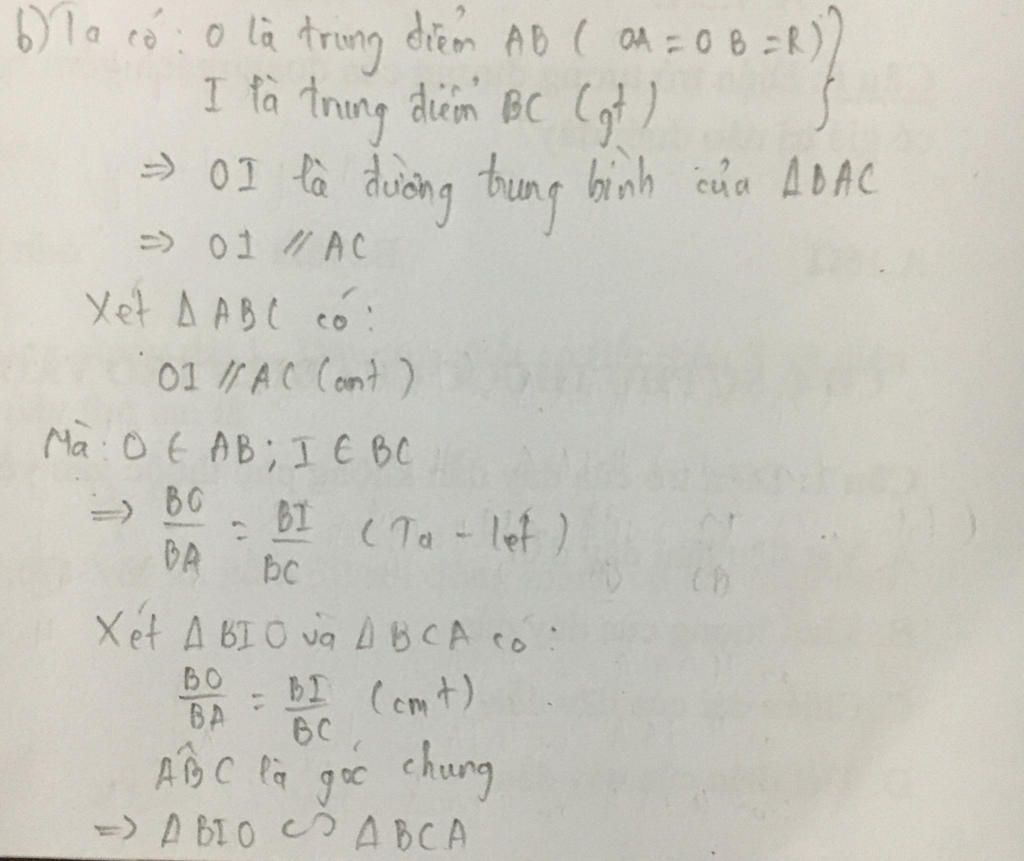 b) Ta có: O là trung điểm AB ( OA = OB = R) }
I là trung điểm BC (gt)
⇒ OI là đường trung bình của ΔBAC
⇒ OI // AC
Xét Δ ABC có:
OI // AC (cmt)
Mà: O ∈ AB; I ∈ BC
⇒ BO/BA = BI/BC (Ta - lét)
Xét Δ BIO và Δ BCA có:
BO/BA = BI/BC (cmt)
AB̂C là góc chung
⇒ Δ BIO ∽ Δ BCA